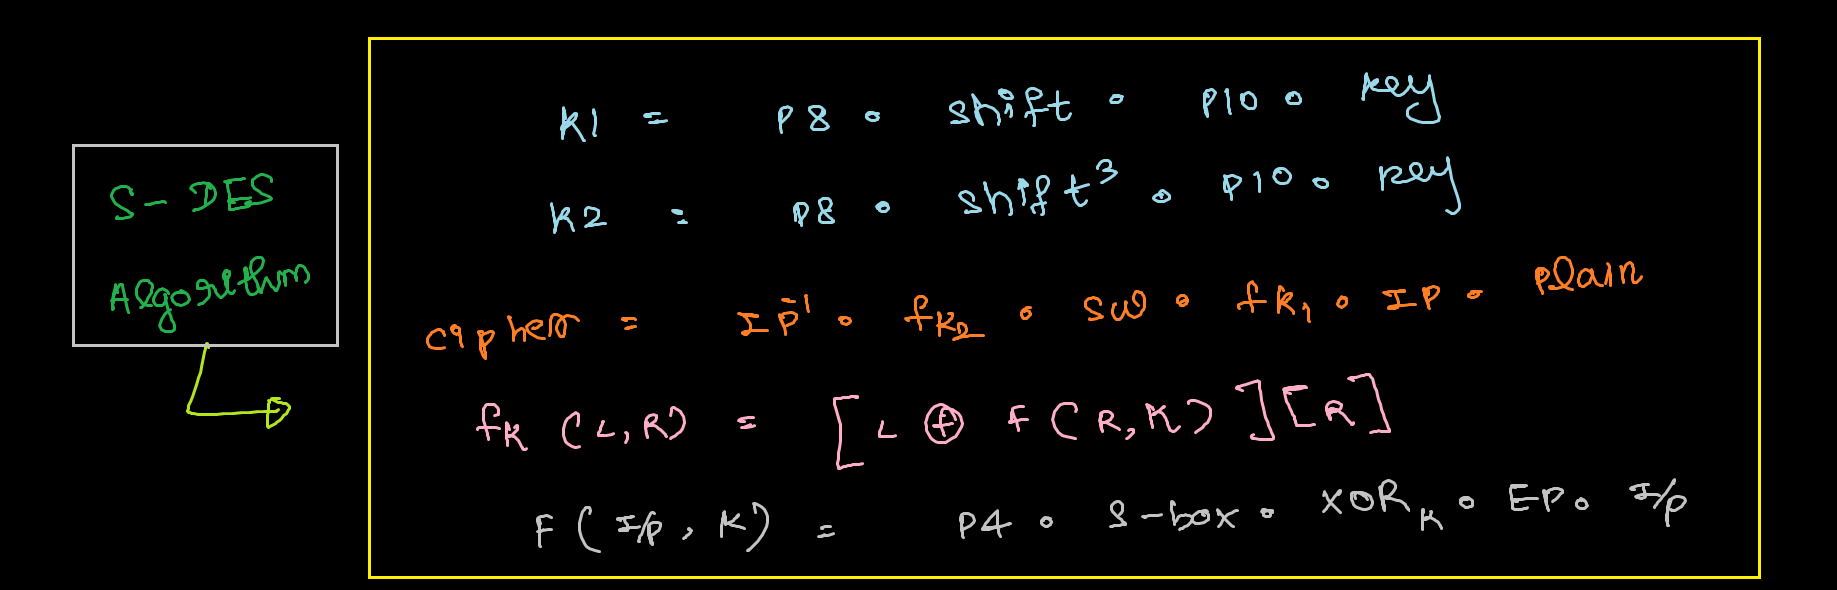 S-DES
Algorithm
K1 = P8 ∘ shift ∘ P10 ∘ key
K2 = P8 ∘ shift³ ∘ P10 ∘ key
cipher = IP⁻¹ ∘ fK₂ ∘ SW ∘ fK₁ ∘ IP ∘ plain
fK (L, R) = [L ⊕ F(R, K)][R]
F(I/p, K) = P4 ∘ S-box ∘ XOR_K ∘ EP ∘ I/p